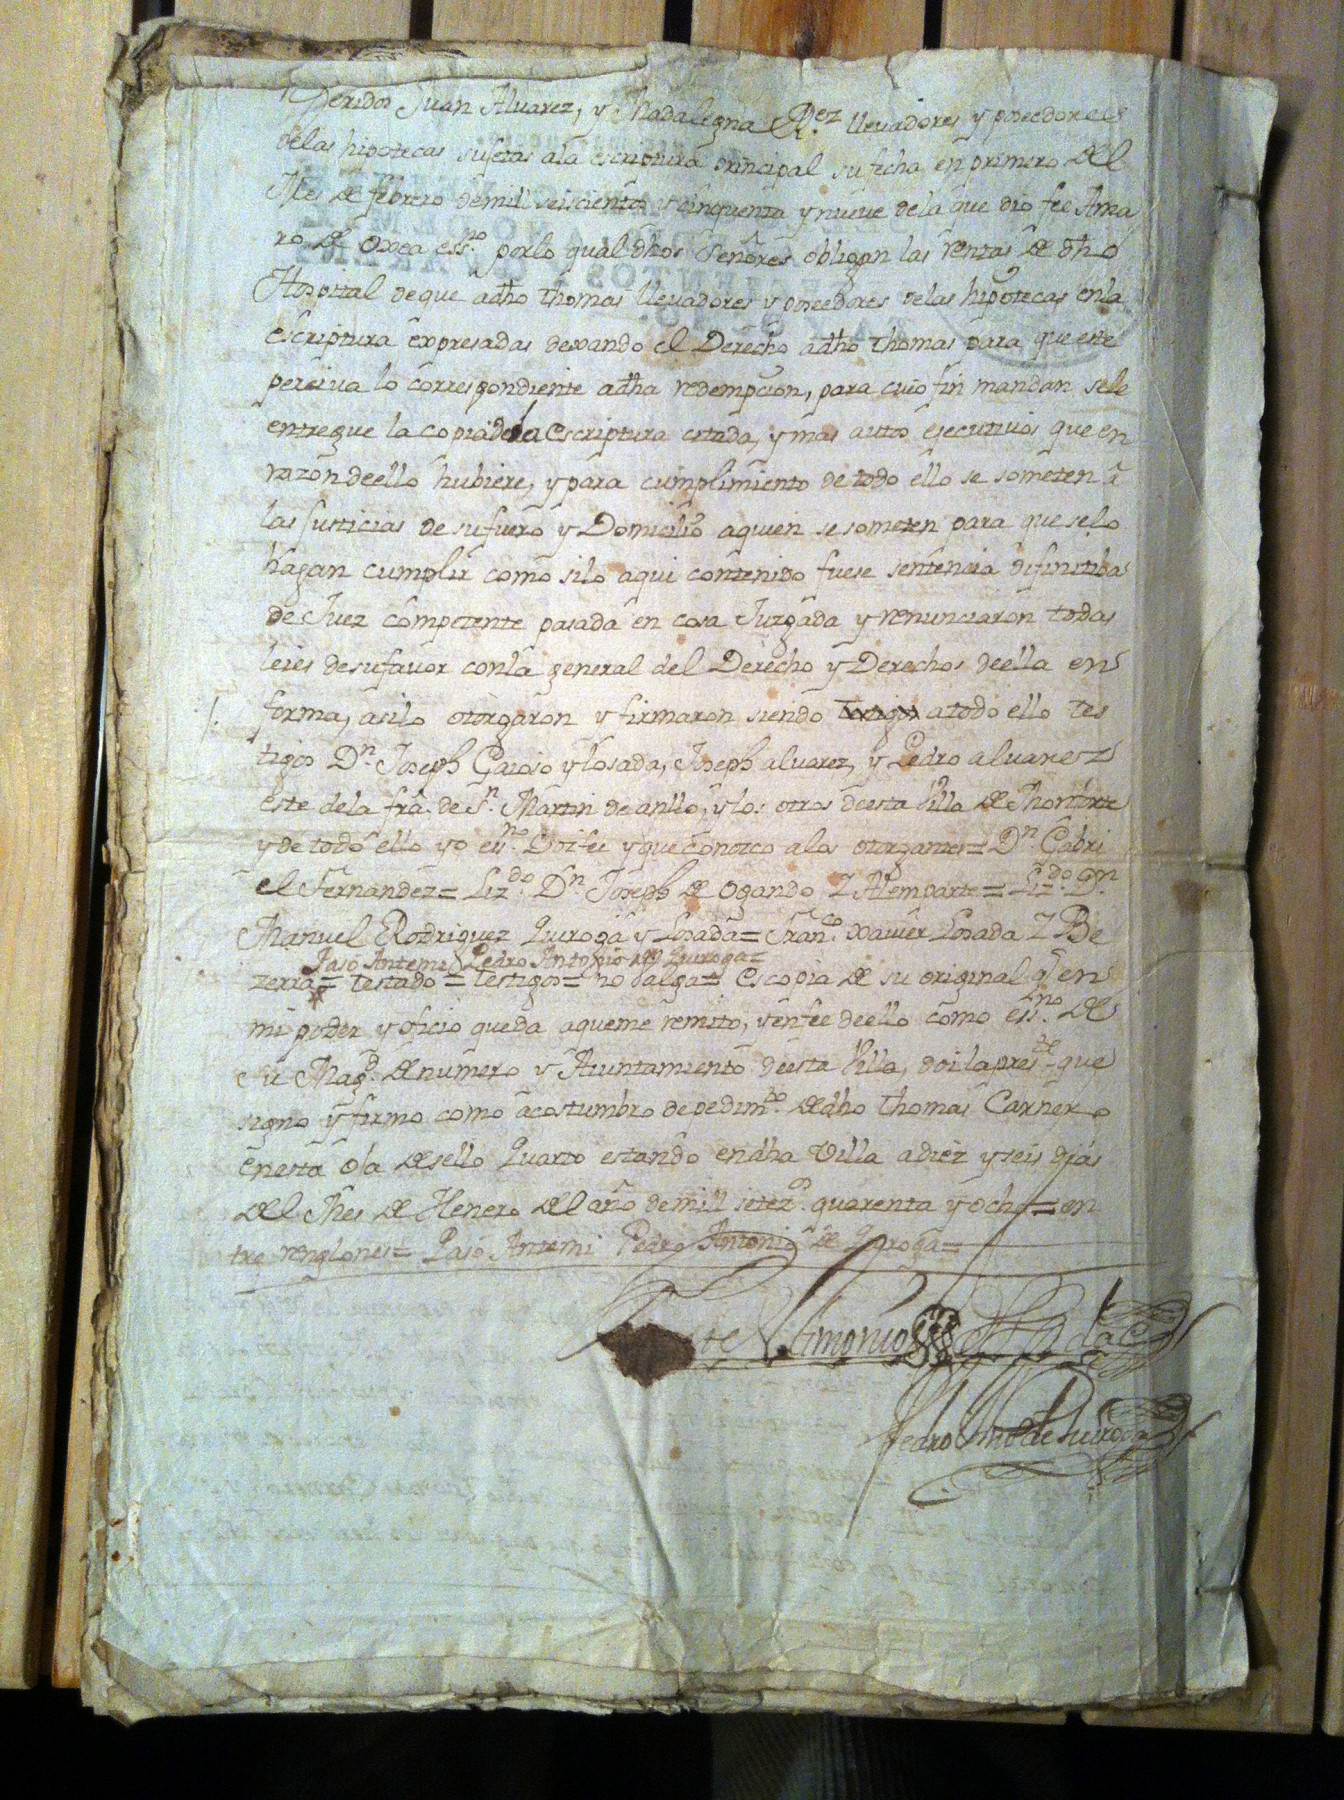 feridos Juan Alvarez, y Madalegna Rez llevadores y poseedores
de las hipotecas sujetas ala escriptura principal su fecha en primero del
Mes de febrero demil seiscientos y cinquenta y nueve dela que dio fee Ama
ro de Oxea essno porlo qual dhos Señores obligan las rentas de dho
Hospital deque adho thomas llevadores y poseedores delas hipotecas enla
escriptura expresadas dexando el Derecho adho thomas para que este
perciva lo correspondiente adha redempcion, para cuio fin mandan sele
entregue la copia dela escriptura citada, y mas autos ejecutivos que en
razon deello hubiere, y para cumplimiento de todo ello se someten a
las justicias de sufuero y Domicilio aquien se someten para que selo
hagan cumplir como silo aqui contenido fuese sentencia difinitiba
de Juez competente pasada en cosa Juzgada y renunciaron todas
leies desufavor conla general del Derecho y Derechos deella en
forma, asilo otorgaron y firmaron siendo testigos atodo ello tes
tigos Dn. Joseph Gaioso y losada, Joseph alvarez, y Pedro alvarez
este dela fra. de Sn. Martin de anllo, y los otros deesta Villa de Monforte
y de todo ello yo essno. Doi fee y que conozco alos otorgantes= Dn. Gabri
el Fernandez= Lizdo. Dn. Joseph de Ogando Z Alemparte= Lizdo. Dn.
Manuel Rodriguez Quiroga y Losada= Franco. xavier Losada Z Be
Pasó Antemi Pedro Antonio de Quiroga=
zerra= testado= testigos= no balga= es copia de su original q. en
mi poder y oficio queda aqueme remito, y enfee deello como essno. de
su Magd. de numero y Aiuntamiento deesta Villa, doi la preste. que
signo y firmo como acostumbro de pedimto. dedho thomas Carnero
enesta oja desello Quarto estando endha Villa adiez y seis dias
del Mes de Henero del año demill setezos. quarenta y ocho= en
tre renglones= Pasó Antemi Pedro Antonio de Quiroga=
Pedro Anto de Quiroga